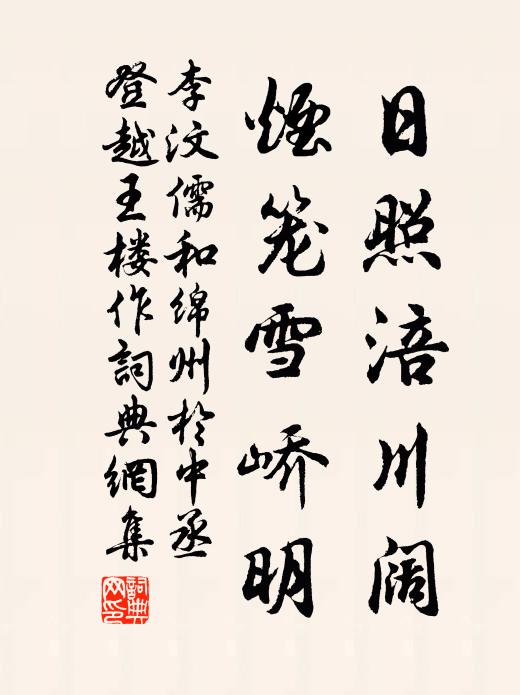 日照涪川阔
烟笼雪峤明
李汶儒和绵州於中丞
登越王楼作词典網集
詞典网印